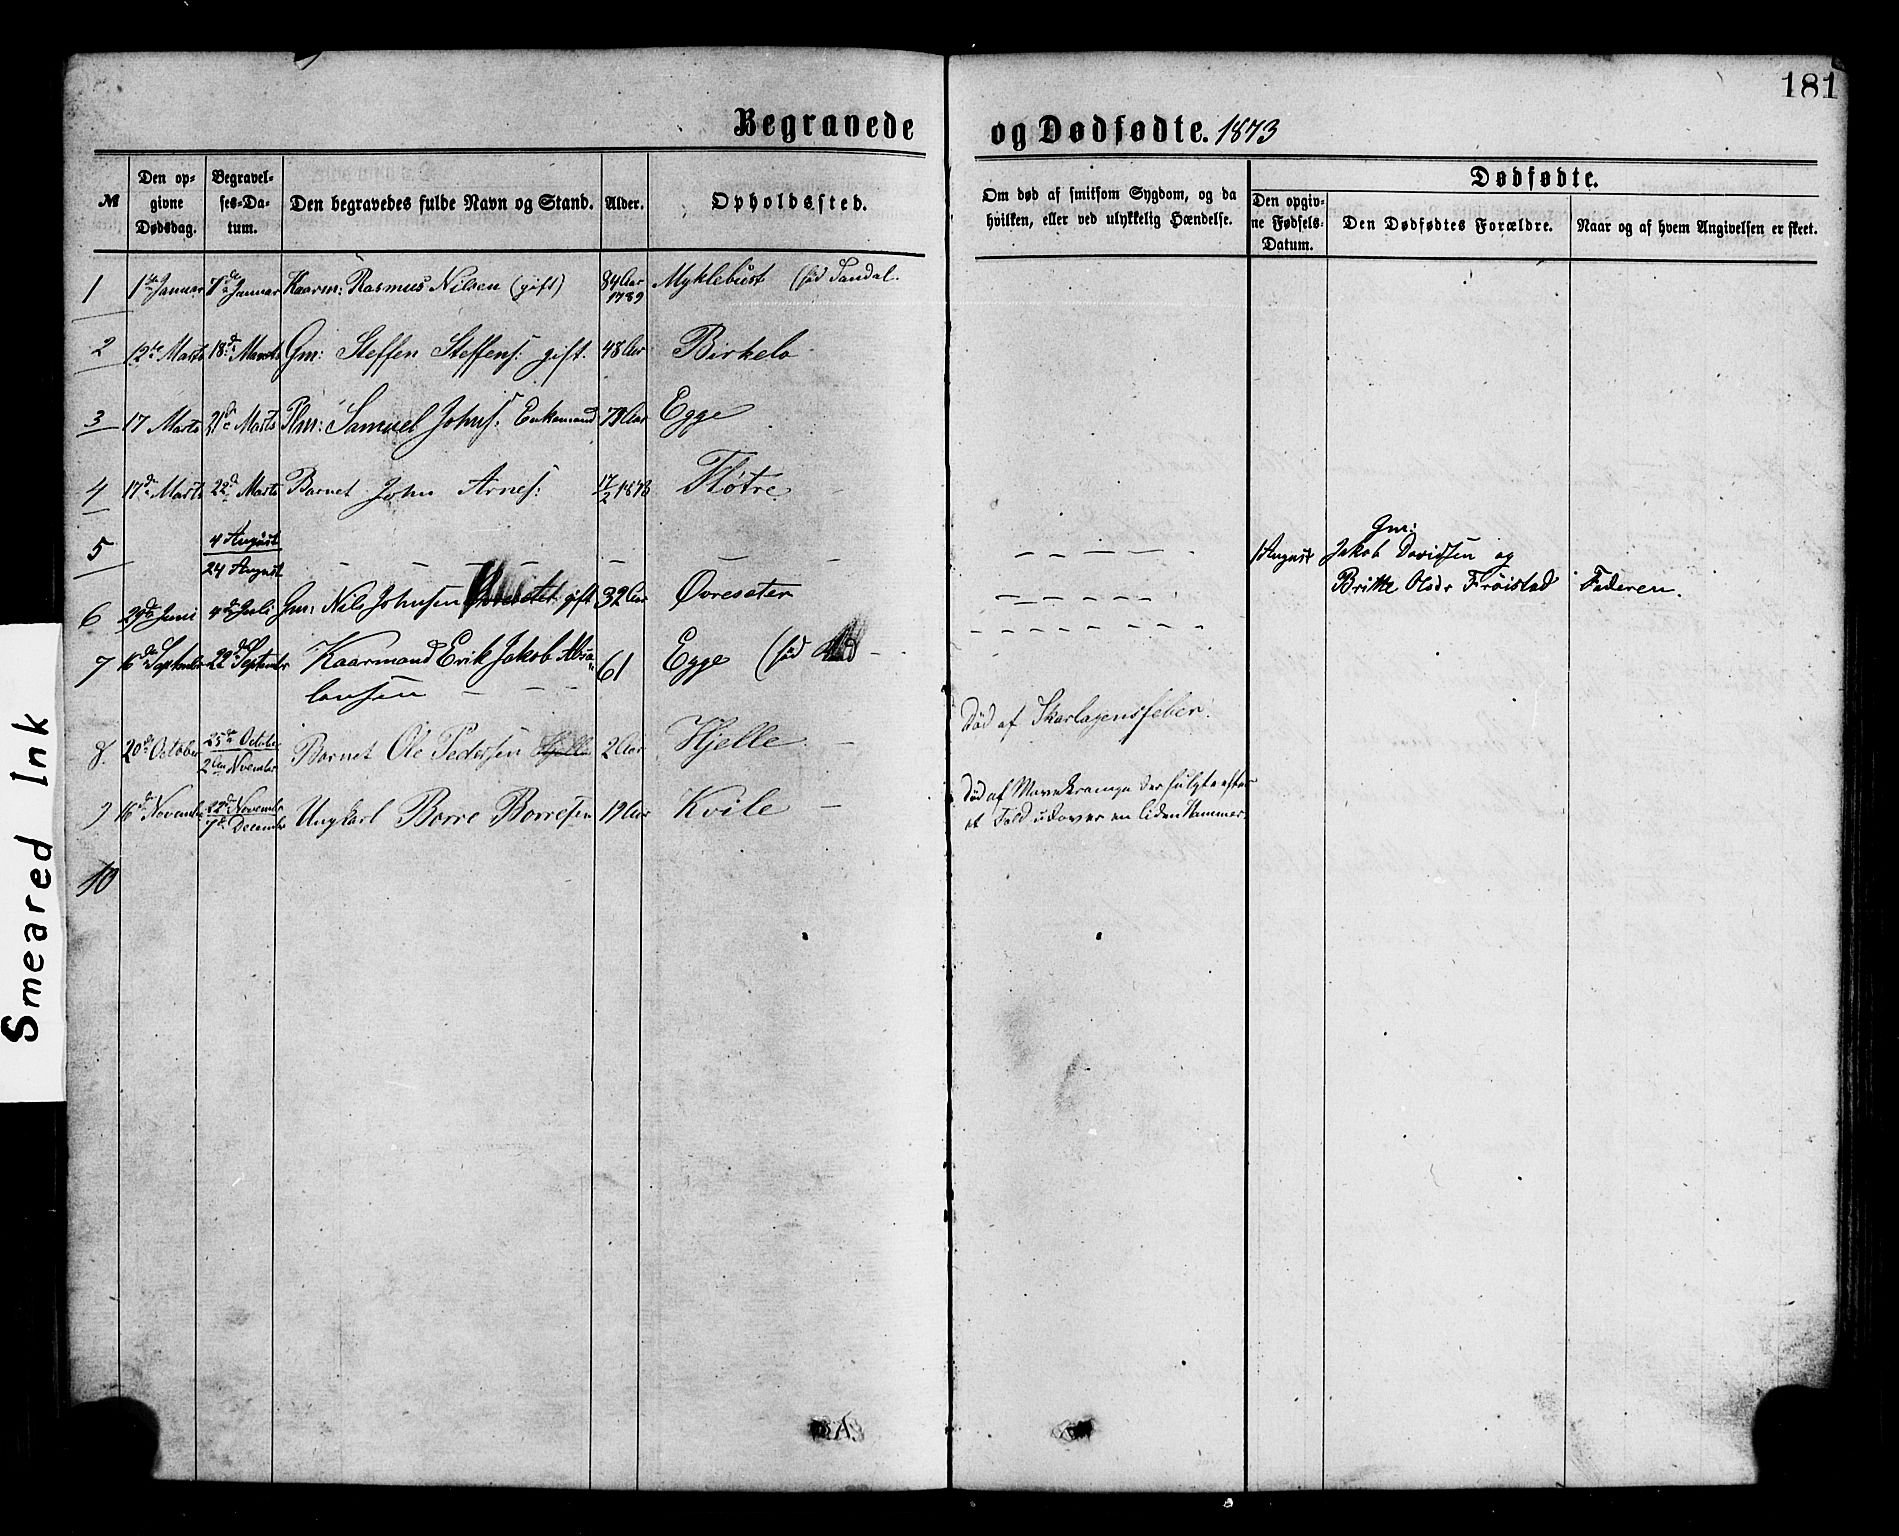 181
Begravede og Dødfødte. 1873
№
Den opgivne Dødsdag.
Begravelses-Datum.
Den begravedes fulde Navn og Stand.
Alder.
Opholdssted.
Om død af smitsom Sygdom, og da hvilken, eller ved ulykkelig Hændelse.
Dødfødte.
Den opgivne Fødsels-Datum.
Den Dødfødtes Forældre.
Naar og af hvem Angivelsen er skeet.
1 1ste Januar 7de Januar Kaarm: Rasmus Nilsen (gift) 84 Aar 1789 Myklebust (fød Sandal
2 12te Marts 18de Marts Gm: Steffen Steffens: gift 48 Aar Birkelo
3 17 Marts 21de Marts Plm: Samuel Johns: Enkemand 79 Aar Egge
4 17de Marts 22de Marts Barnet John Arnes: 17/2 1873 Fløtre
5 4 August 24 August 1 August Gm: Jakob Davidsen og
Britte Olsdr Frøistad Faderen.
6 29de Juni 4de Juli Gm: Nils Johnsen gift 32 Aar Øvreseter
7 16de September 22de September Kaarmand Erik Jakob Absa-
lonsen 61 Egge (fød
8. 20de October 25de October 2den November Barnet Ole Pedersen Hjelle 2 Aar Hjelle Død af Skarlagensfeber.
9 16de November 22de November 7de December Ungkarl Borre Borresen 19 Aar Kvile Død af Mavekrampe der fulgte efter
et Fald udover en liden Hammer.
10
Smeared Ink